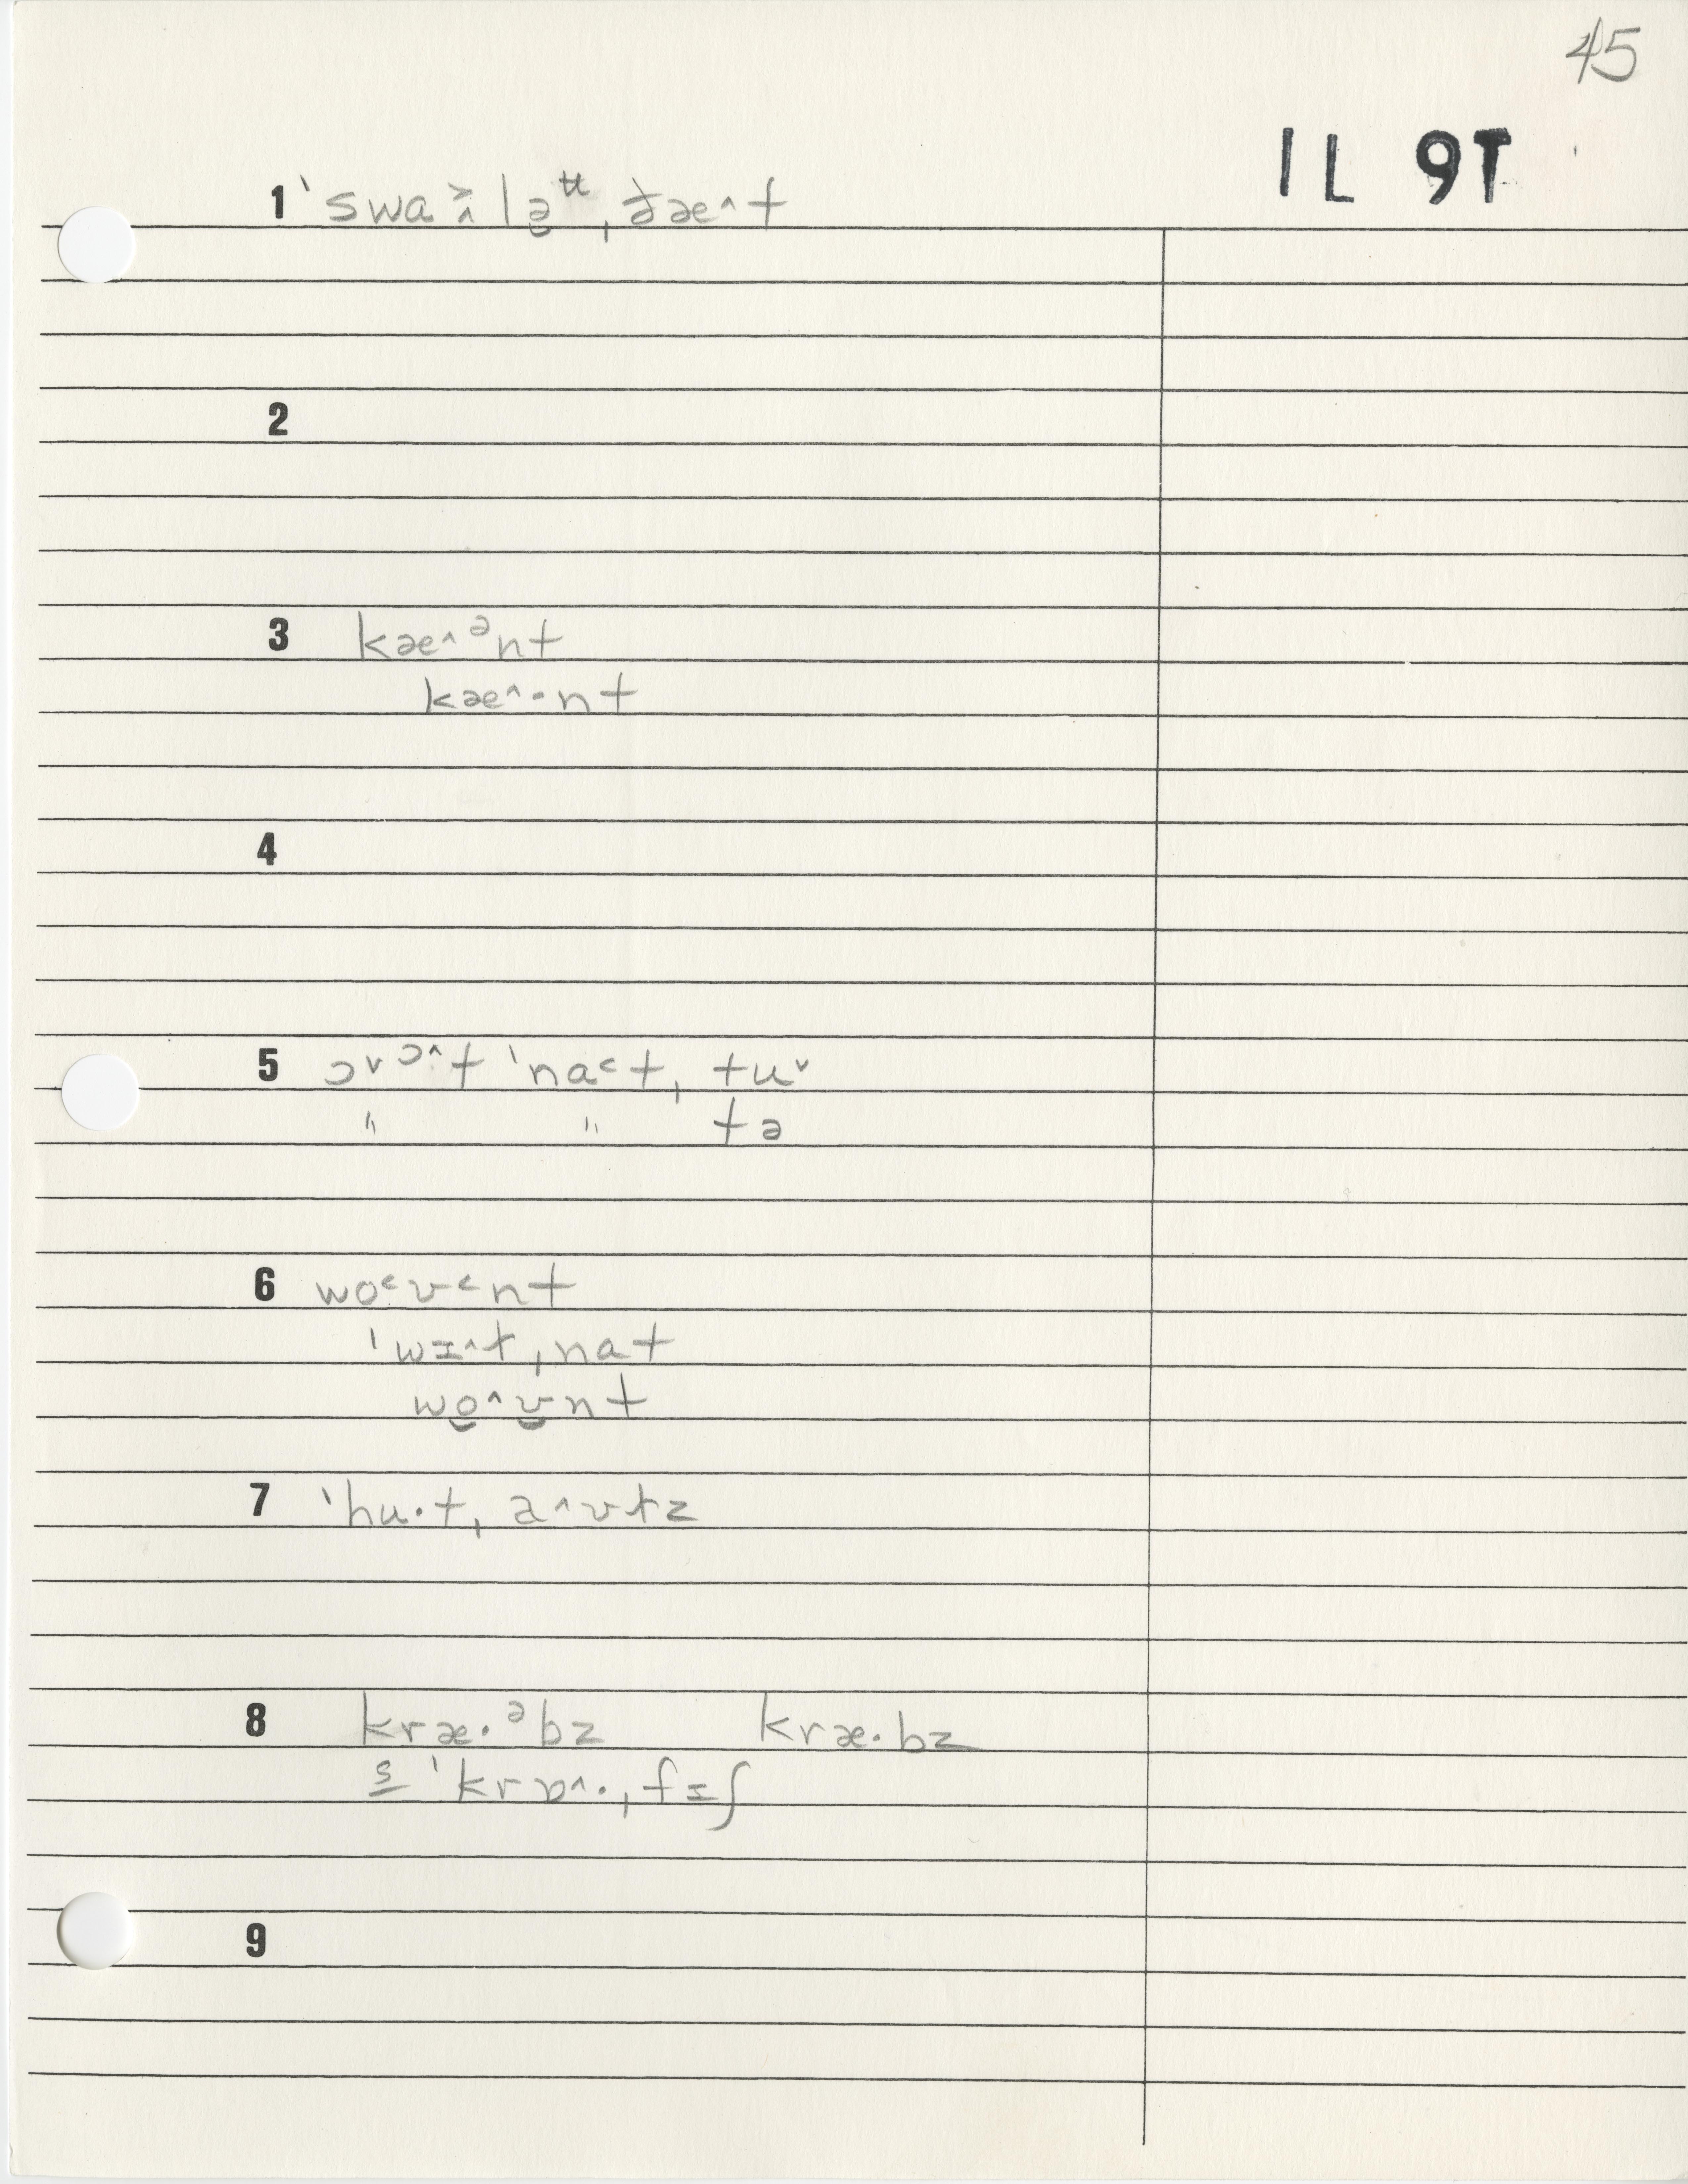 45
1L 9T
1 ˈswa≥̭lə̮ᵗᵗˌdæ^t
2
3 kæ^ᵊnt
kæ^·nt
4
5 ɔ˅ɔ^t ˈna<tˌtu˅
" " tə
6 wo<ʊ<nt
ˈwɪ^tˌnat
wo̮^ʊ̮nt
7 ˈhu·tˌa^ʊtz
8 kræ·ᵊbz kræ·bz
s̲ ˈkrɒ^·ˌfɪʃ
9